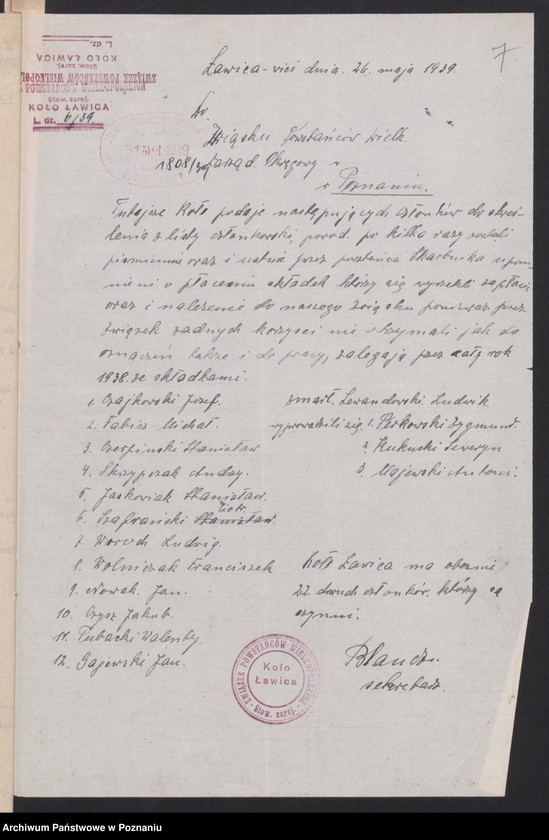 7
Ławica-wieś dnia. 26. maja 1939.
ZWIĄZEK POWSTAŃCÓW WIELKOPOL
Stow. zarej.
KOŁO ŁAWICA
L. dz.
Stow. zarej.
KOŁO ŁAWICA
L. dz. 6/39.
Do
Związku Powstańców Wielk.
1808/39
Zarząd Okręgowy
w Poznaniu.
Tutejsze Koło podaje następujących członków do skreś-
lenia z listy członkowskiej, powod. po kilka razy zostali
piśmiennie oraz i ustnie przez Skarbnika upom-
nieni o płacenie składek którzy się wyrzekli zapłacić
oraz i należenie do naszego związku ponieważ przez
związek żadnych korzyści nie otrzymali jak do
oznaczeń także i do pracy, zalegają przez cały rok
1938. ze składkami.
1. Czajkowski Józef.
2. Fabisz Michał.
3. Stanisław
4. Skrzypczak Andrzy.
5. Jaskowiak Stanisław.
6. Szafrański Stanisław. Piotr.
7. Ludwig.
8. Wolniczak Franciszek
9. Nowak Jan.
10. Czysz Jakub.
11. Tubacki Walenty
12. Gajewski Jan.
zmarł. Lewandowski Ludwik
wyprowadzili się. 1. Perkowski Zygmunt.
2. Kukucki Seweryn
3. Majewski Antoni.
Koło Ławica ma obecnie
22. dwuch członków, którzy są
czynni.
ZWIĄZEK POWSTAŃCÓW WIELKOPOLSKICH
Koło
Ławica
Stow. zarej.
sekretarz.
Archiwum Państwowe w Poznaniu